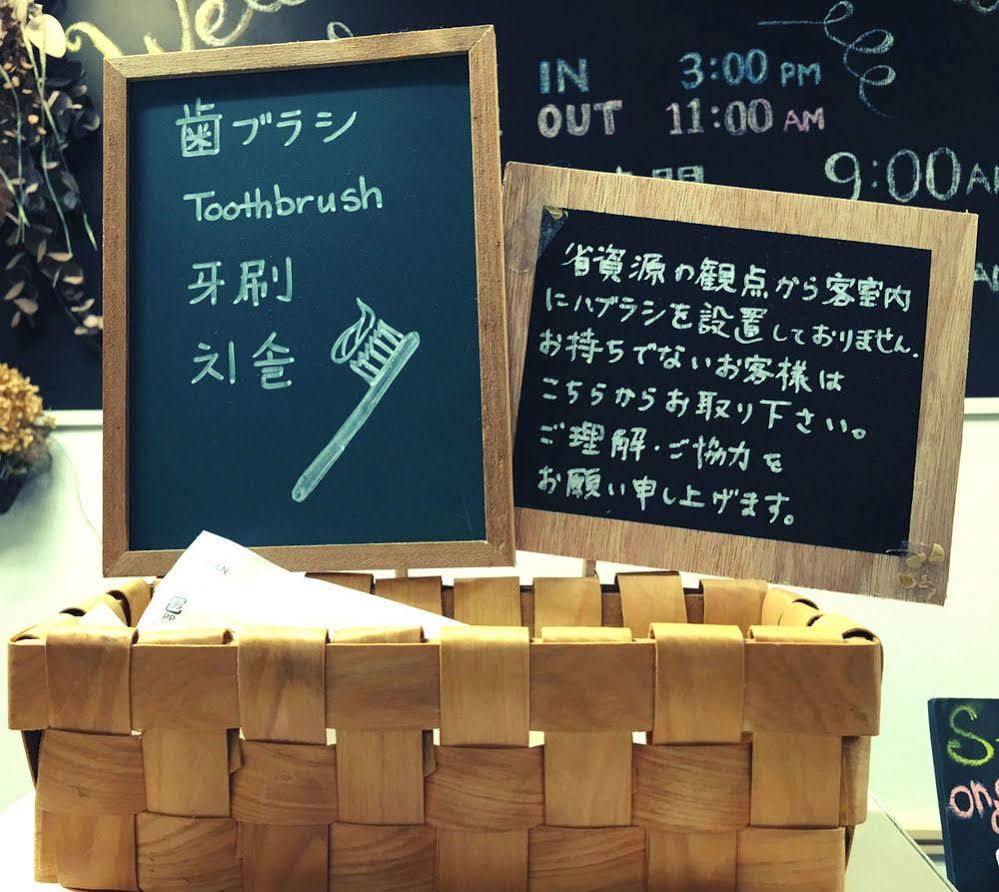 IN 3:00 PM
OUT 11:00 AM
9:00 AM
歯ブラシ
Toothbrush
牙刷
치솔
省資源の観点から客室内
にハブラシを設置しておりません.
お持ちでないお客様は
こちらからお取り下さい。
ご理解・ご協力を
お願い申し上げます。
PP